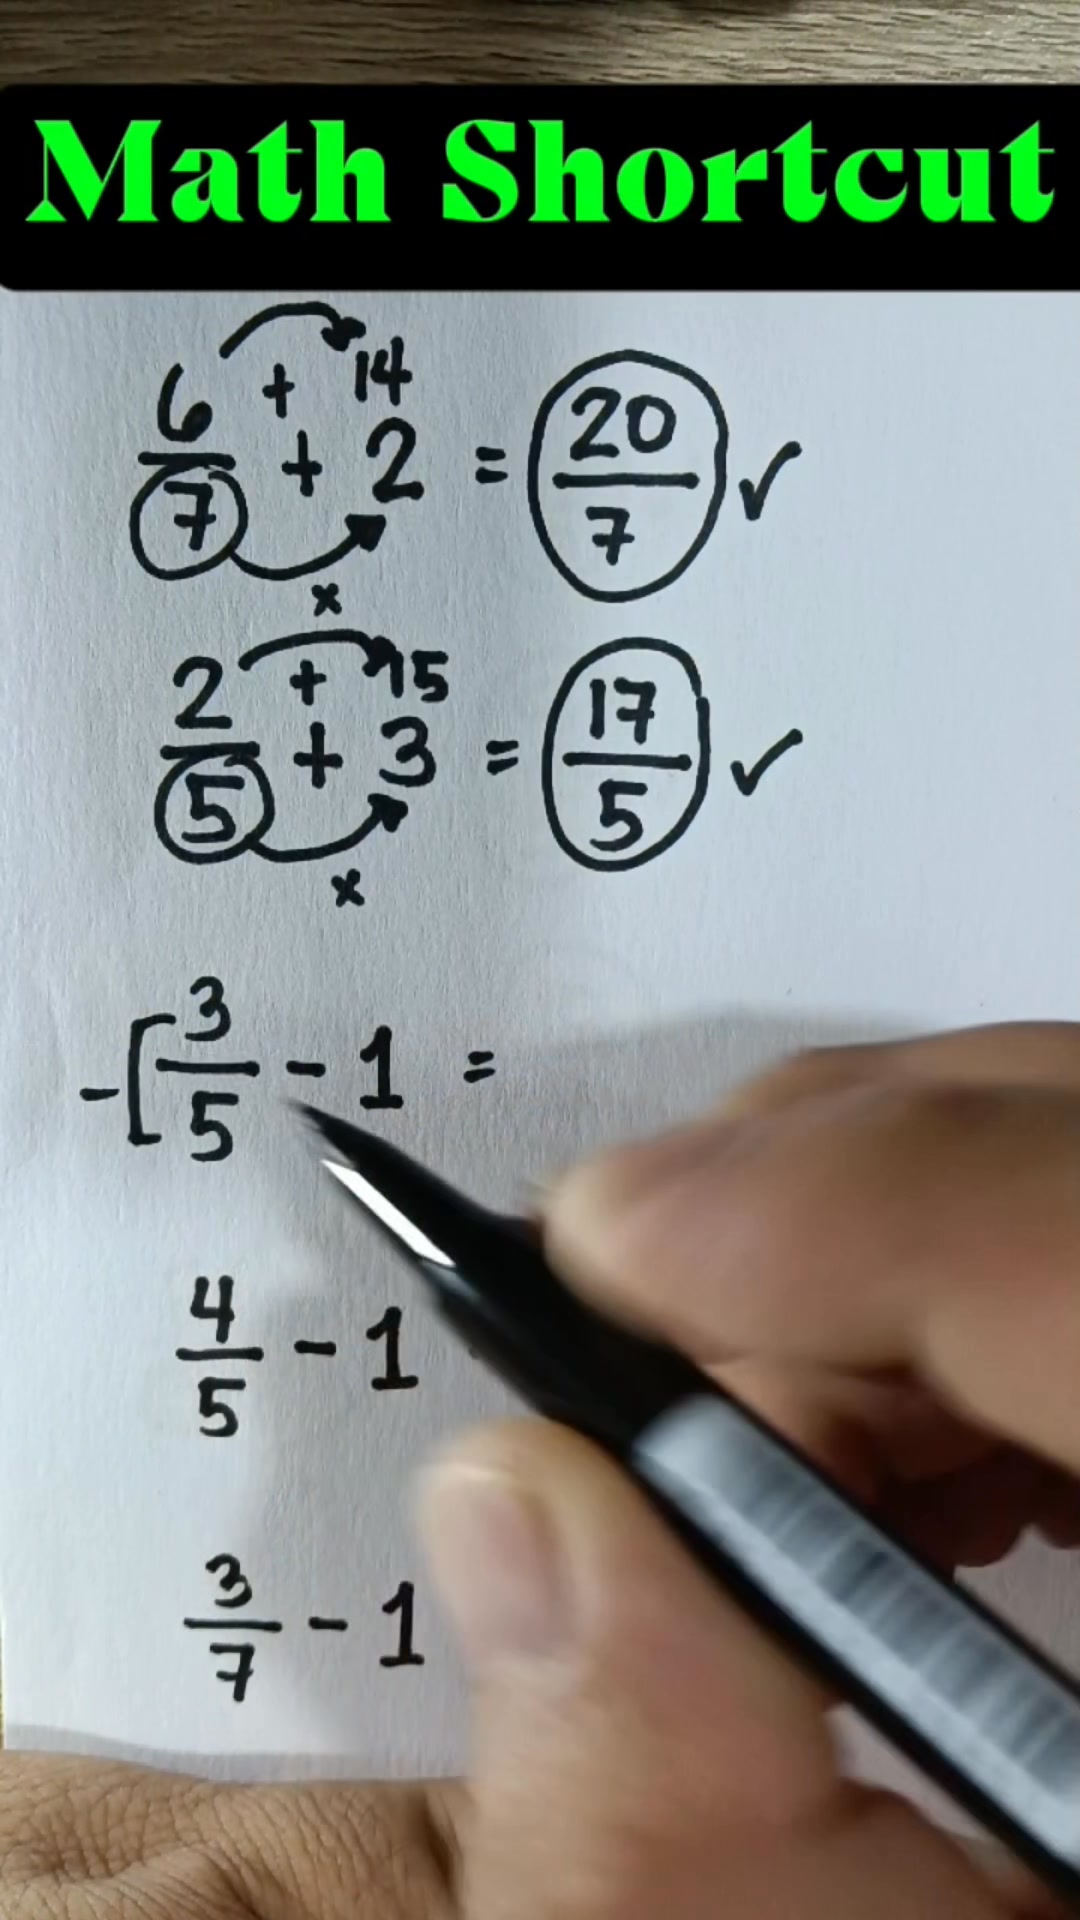 Math Shortcut
6 + 14
7 + 2 = 20/7 ✓
x
2 + 15
5 + 3 = 17/5 ✓
x
-[3/5 - 1 =
4/5 - 1
3/7 - 1